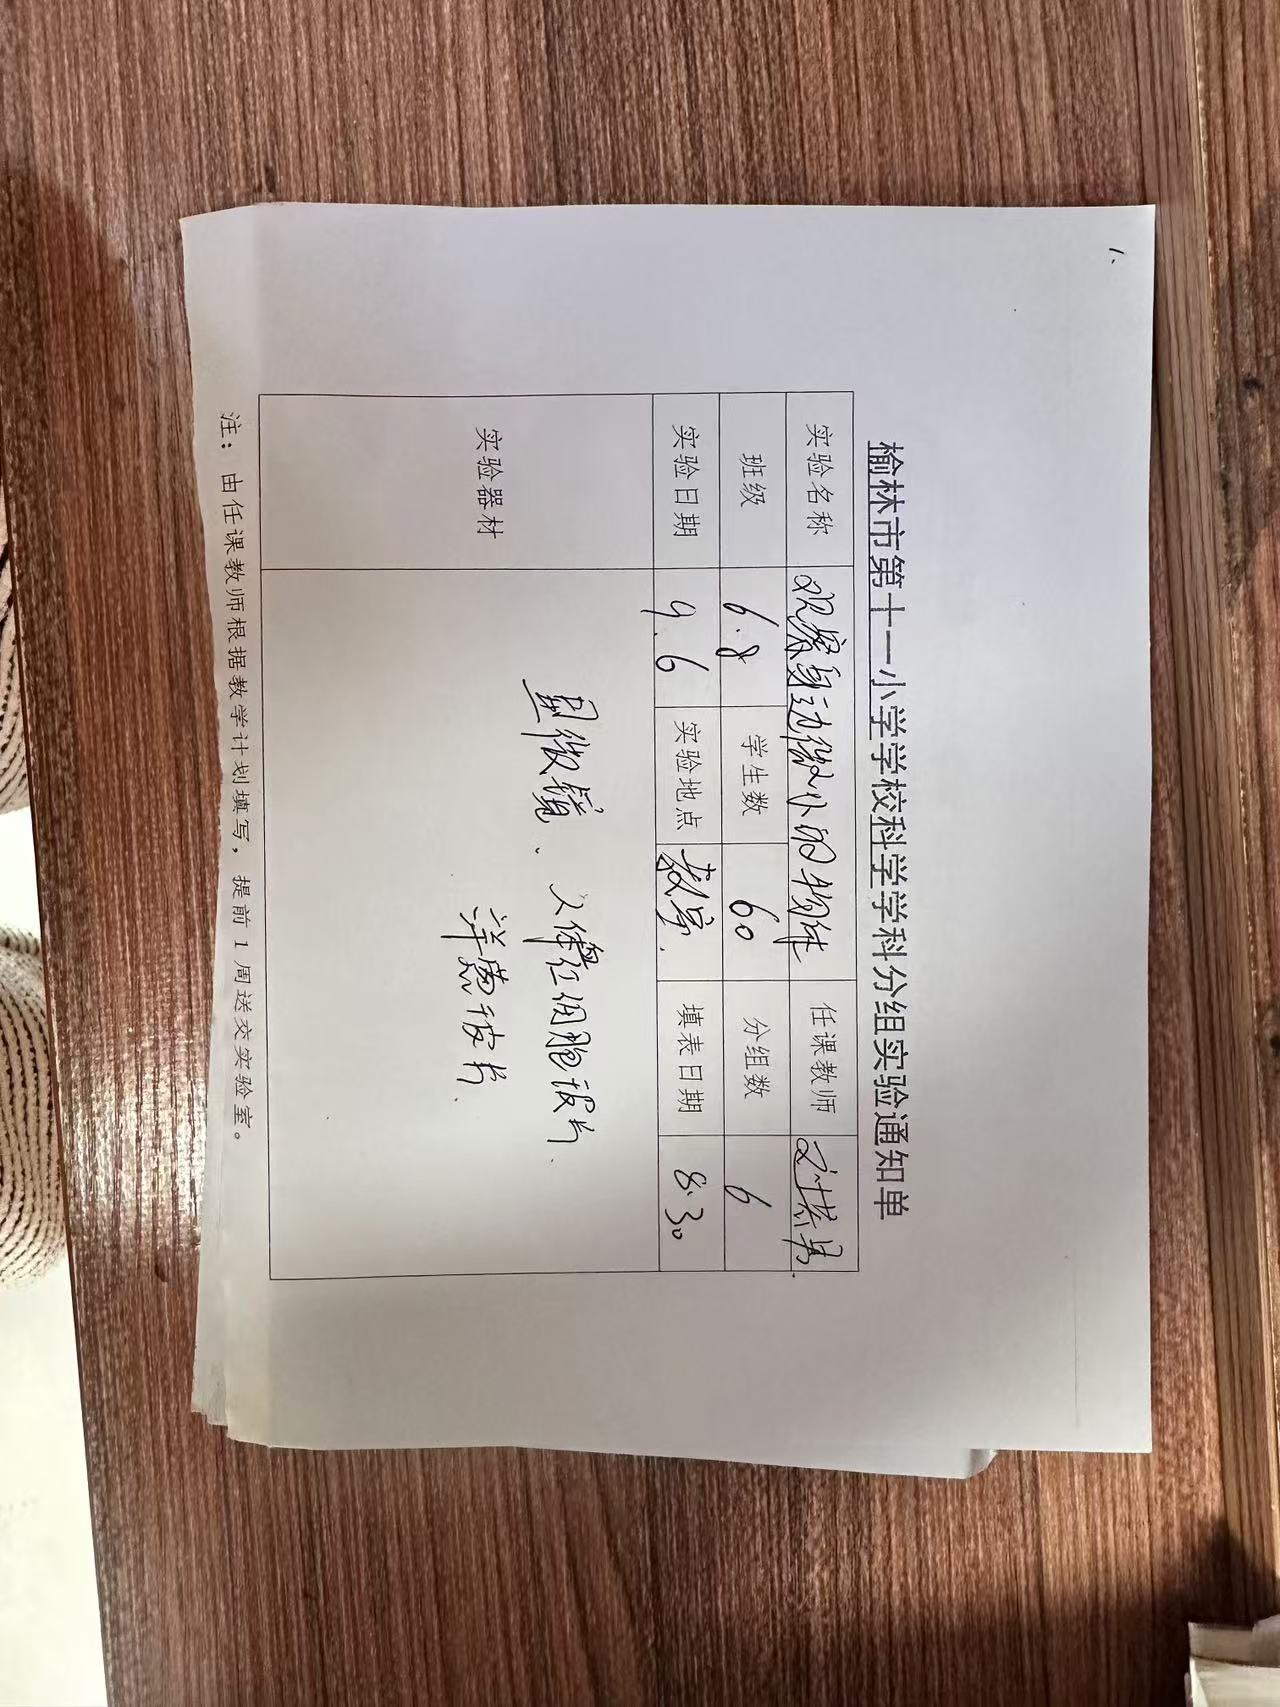 1.
榆林市第十一小学学校科学学科分组实验通知单
实验名称 观察身边微小的物体 任课教师
班级 6.8 学生数 60 分组数 6
实验日期 9.6 实验地点 教室. 填表日期 8.30
实验器材 显微镜、人体血红细胞玻片.
洋葱玻片.
注：由任课教师根据教学计划填写，提前1周送交实验室。